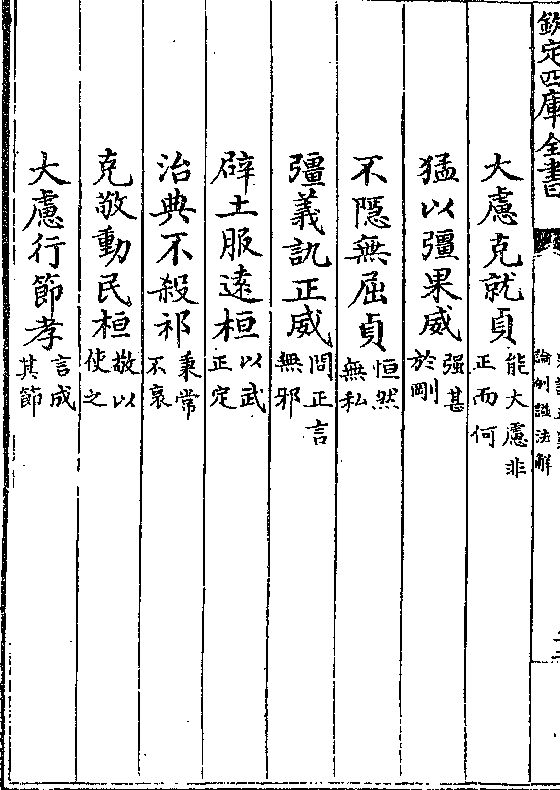 欽定四庫全書
論例諡法解
大慮克就貞能大慮非
正而何
猛以彊果威强甚
於剛
不隱無屈貞恒然
無私
彊義訊正威問正言
無邪
辟土服遠桓以武
正定
治典不殺祁秉常
不衰
克敬動民桓敬以
使之
大慮行節孝言成
其節